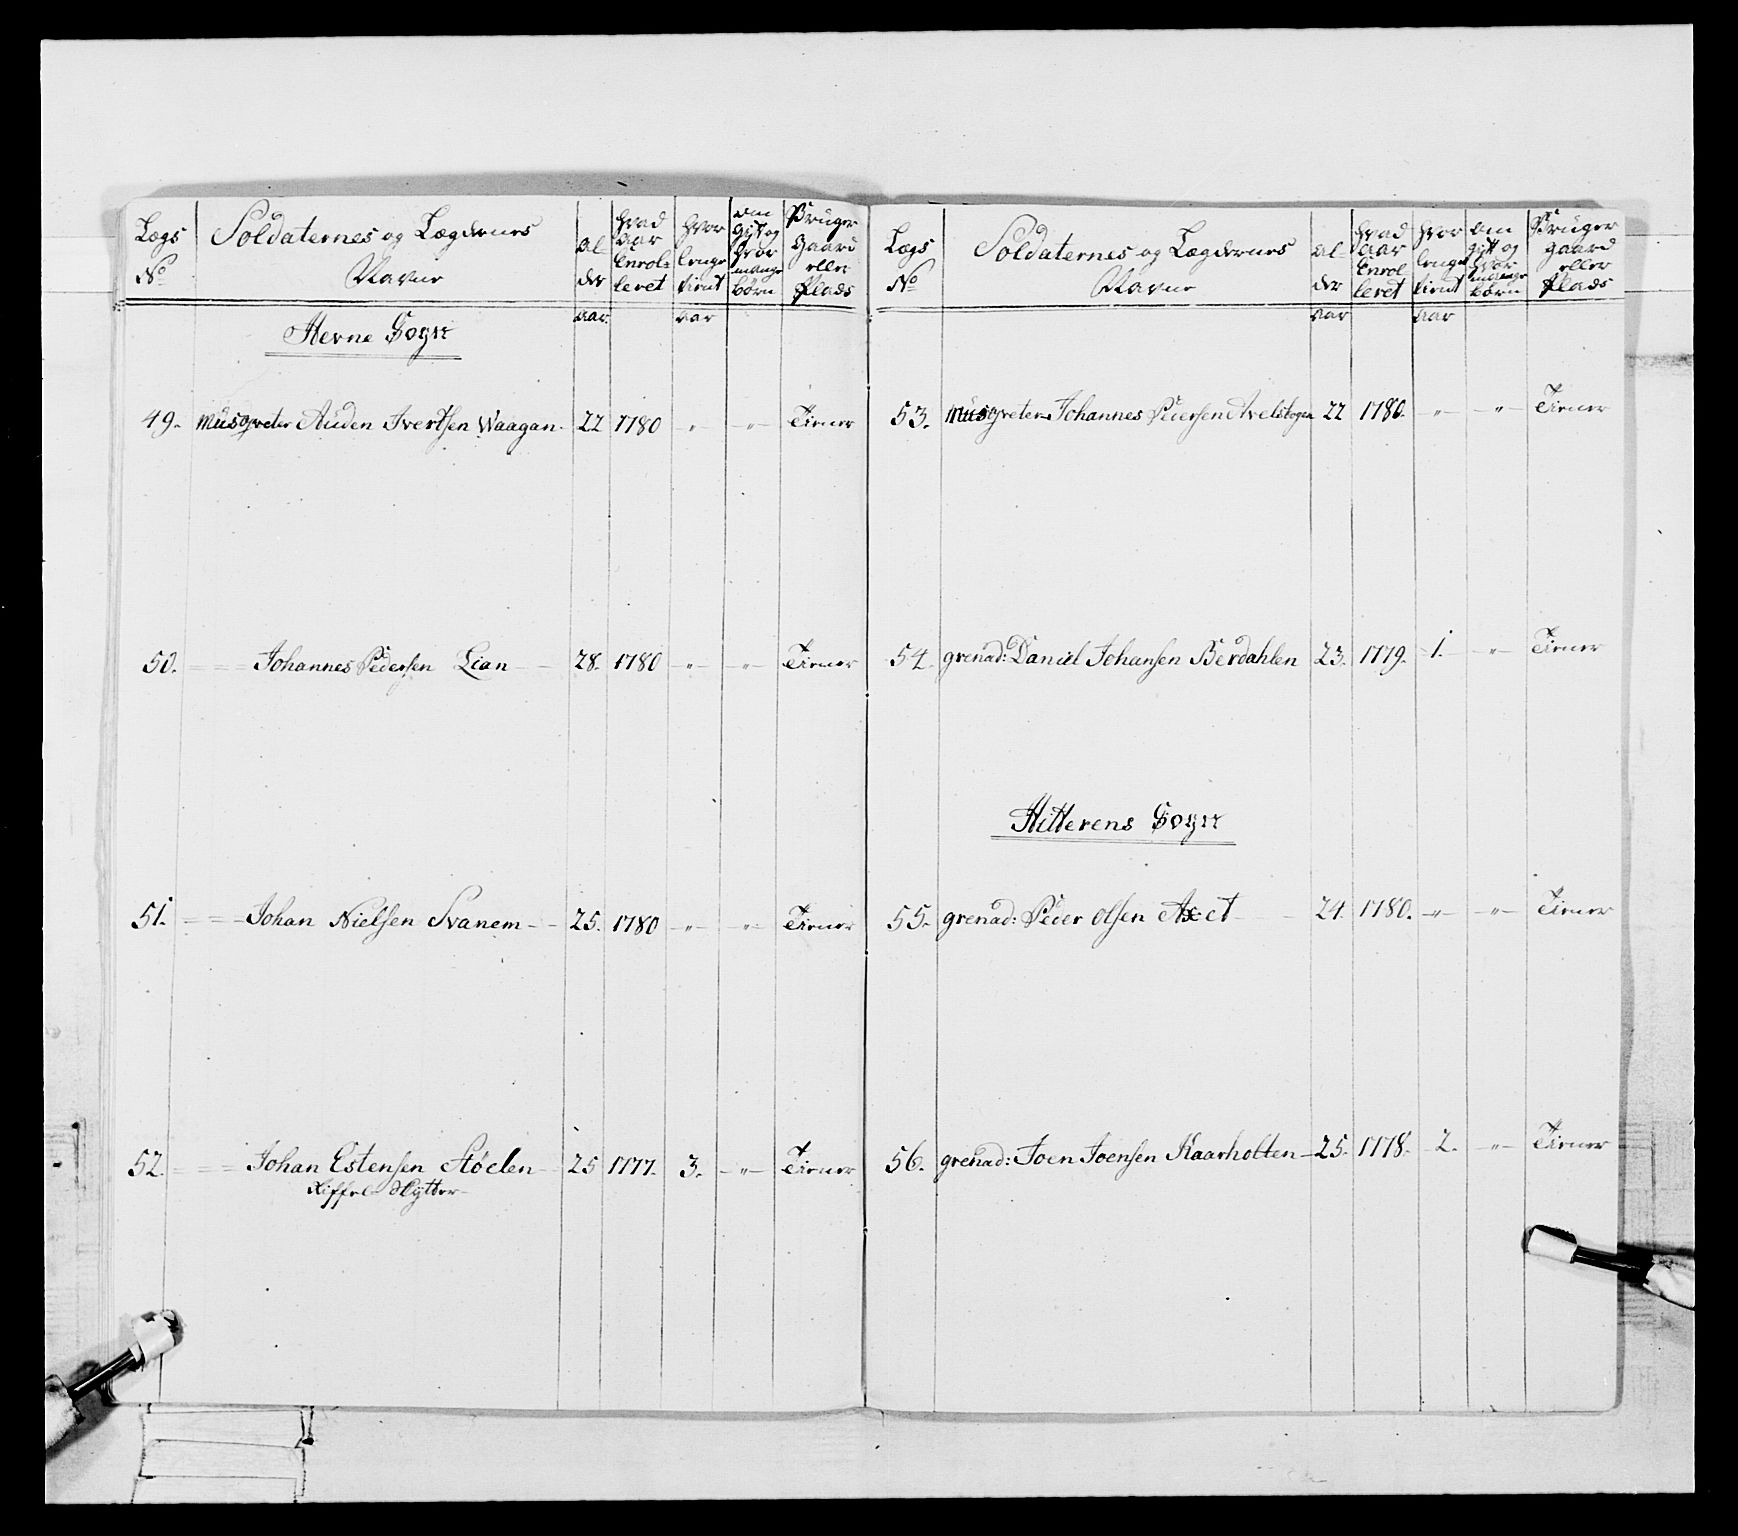 Lægs No | Soldaternes og Lægdernes Navne | Al der | Hvad Aar Enrol leret | Hvor lenge tient | Om Gift og hvor mange Børn | Bruger Gaard eller Plads
Aar | Aar
Herne Sogn
49. Musqveter Auden Ivertsen Waagan 22 1780 " " Tiener
50. = = Johannes Pedersen Lian 28. 1780 " " Tiener
51. = = Johan Nielsen Svanem 25. 1780 " " Tiener
52. = = Johan Estensen Støelen 25 1777. 3. " Tiener
Riffel Skytter
Lægs No | Soldaternes og Lægdernes Navne | Al der | Hvad Aar Enrol leret | Hvor lenge tient | Om gift og hvor mange Børn | Bruger gaard eller Plads
Aar | Aar
53. Musqveter Johannes Pedersen 22 1780. " " Tiener
54. grenad: Daniel Johansen Berdahlen 23. 1779. 1. " Tiener
Hitterens Sogn
55. grenad: Peder Olsen 24. 1780. " " Tiener
56. grenad: Joen Joensen Kaarholten 25. 1778. 2. " Tiener